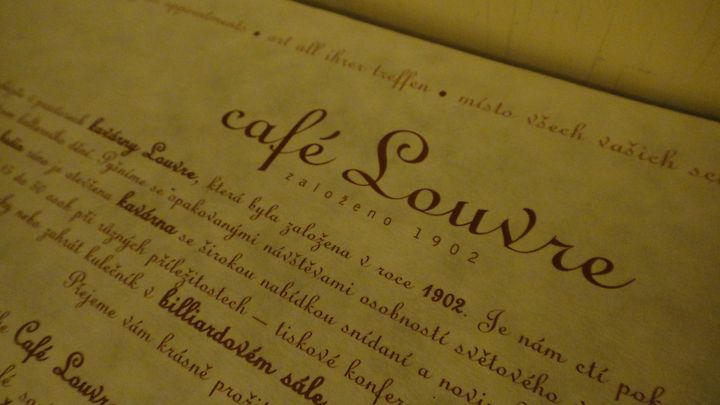 appointments • ort all ihrer treffen • místo všech vašich
café Louvre
založeno 1902
kavárny Louvre, která byla založena v roce 1902. Je nám ctí
Pyšníme se opakovanými návštěvami osobností světového
je otevřena kavárna se širokou nabídkou snídaní a
15 do 50 osob při různých příležitostech – tiskové
nebo zahrát kulečník v billiardovém sále
Přejeme vám krásně
Café Louvre